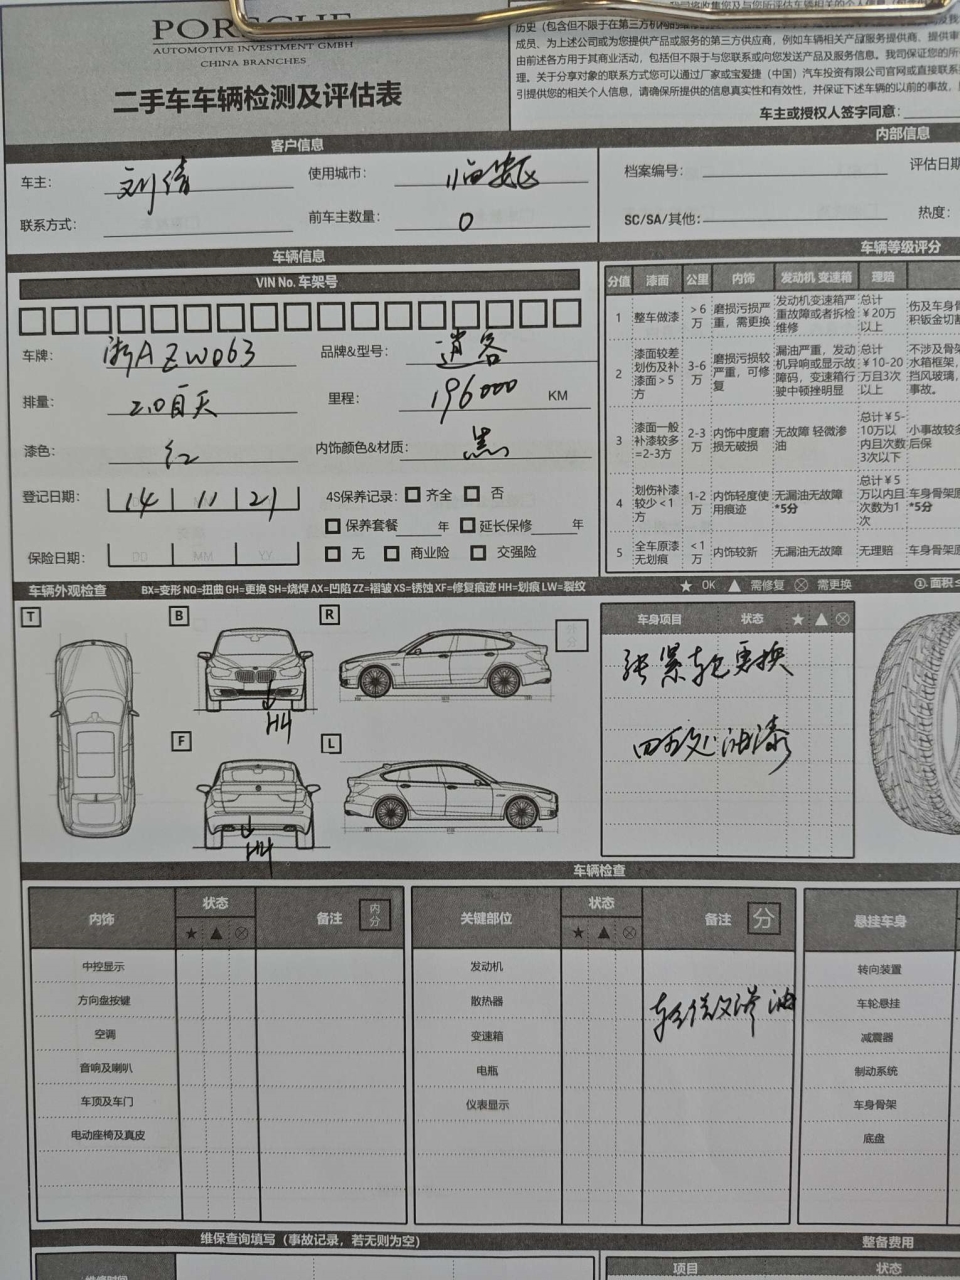 PORSCHE
AUTOMOTIVE INVESTMENT GMBH
CHINA BRANCHES
二手车车辆检测及评估表
历史（包含但不限于在第三方机构的维
成员、为上述公司或为您提供产品或服务的第三方供应商，例如车辆相关产品服务提供商、提供审
由前述各方用于其商业活动，包括但不限于与您联系或向您发送产品及服务信息。我司保证您的所
理。关于分享对象的联系方式您可以通过厂家或宝爱捷（中国）汽车投资有限公司官网或直接联系
引提供您的相关个人信息，请确保所提供的信息真实性和有效性，并保证下述车辆的以前的事故、
车主或授权人签字同意：
客户信息
内部信息
车主： 刘倩 使用城市： 临安区
联系方式： 前车主数量： 0
档案编号： 评估日期
SC/SA/其他： 热度：
车辆信息
VIN No. 车架号
车牌： 浙A ZW063 品牌&型号： 逍客
排量： 2.0自天 里程： 196000 KM
漆色： 红 内饰颜色&材质： 黑
登记日期： 14 11 21 4S保养记录： 齐全 否
保养套餐 年 延长保修 年
保险日期： DD MM YY 无 商业险 交强险
车辆等级评分
分值 漆面 公里 内饰 发动机 变速箱 理赔
1 整车做漆 >6万 磨损污损严重，需更换 发动机变速箱严重故障或者拆检维修 总计￥20万以上 伤及车身骨 积钣金切割
2 漆面较差 划伤及补漆面>5方 3-6万 磨损污损较严重，可修复 漏油严重，发动机异响或显示故障码，变速箱行驶中顿挫明显 总计￥10-20万且3次以上 不涉及骨架 水箱框架， 挡风玻璃， 事故。
3 漆面一般 补漆较多=2-3方 2-3万 内饰中度磨损无破损 无故障 轻微渗油 总计￥5-10万以内且次数3次以下 小事故较多 后保
4 划伤补漆较少<1方 1-2万 内饰轻度使用痕迹 无漏油无故障 *5分 总计￥5万以内且次数为1次 车身骨架 *5分
5 全车原漆无划痕 <1万 内饰较新 无漏油无故障 无理赔 车身骨架
车辆外观检查 BX=变形 NQ=扭曲 GH=更换 SH=烧焊 AX=凹陷 ZZ=褶皱 XS=锈蚀 XF=修复痕迹 HH=划痕 LW=裂纹 ★ OK ▲ 需修复 ⊗ 需更换 ①. 面积
T B R
HH
F L
HH
车身项目 状态 ★ ▲ ⊗
张紧轮更换
油漆
车辆检查
内饰 状态 ★ ▲ ⊗ 备注 内分
中控显示
方向盘按键
空调
音响及喇叭
车顶及车门
电动座椅及真皮
关键部位 状态 ★ ▲ ⊗ 备注 分
发动机
散热器
变速箱
电瓶
仪表显示
渗油
悬挂车身
转向装置
车轮悬挂
减震器
制动系统
车身骨架
底盘
维保查询填写（事故记录，若无则为空）
整备费用
项目 状态